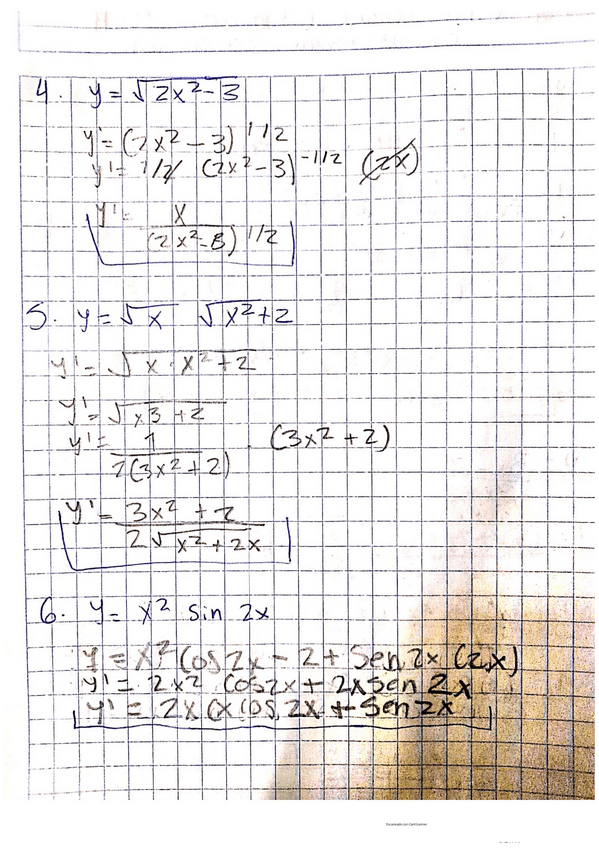 4. y = √2x²-3
y' = (2x² - 3) 1/2
y' = 1/2 (2x² - 3) -1/2 (2x)
y' = x
(2x²-3) 1/2
5. y = √x √x²+2
y' = √x · x²+2
y' = √x3 +2
y' = 1 · (3x² + 2)
2(3x²+2)
y' = 3x² + 2
2√x²+2x
6. y = x² sin 2x
y = x² Cos 2x - 2 + Sen 2x (2x)
y' = 2x² Cos2x + 2x Sen 2x
y' = 2x (x cos 2x + Sen 2x
Escaneado con CamScanner